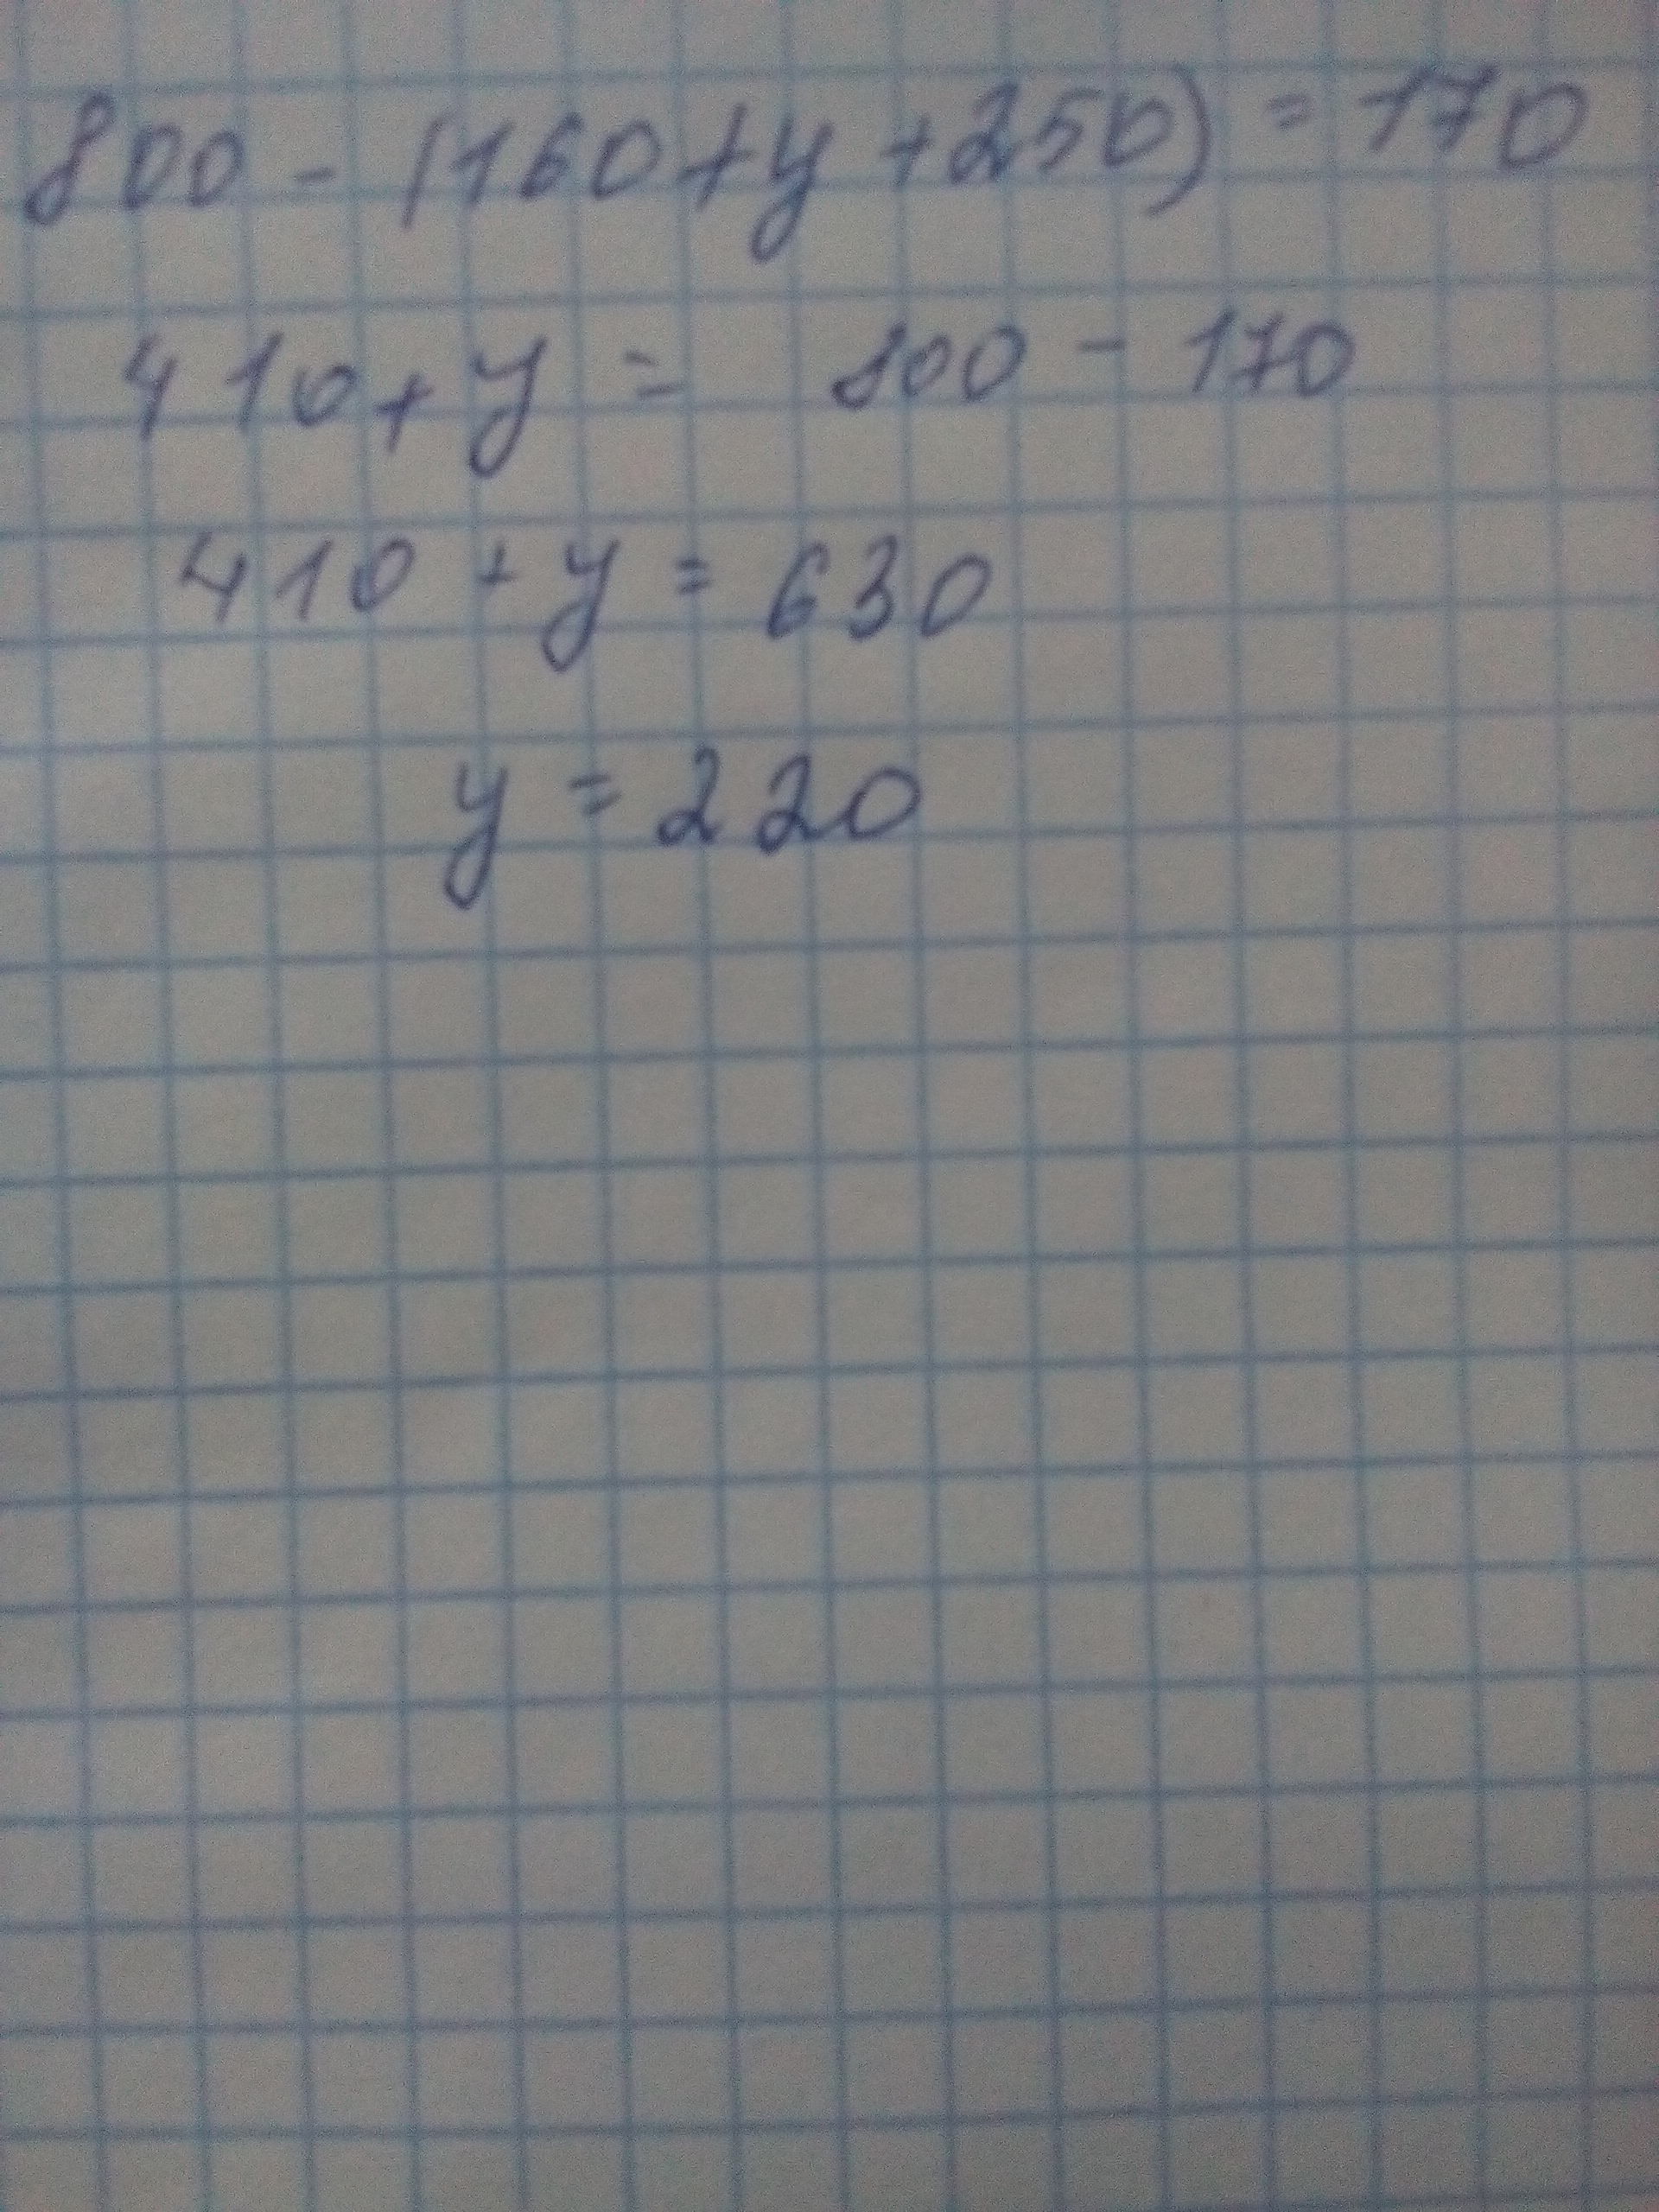 800 - (160 + y + 250) = 170
410 + y = 800 - 170
410 + y = 630
y = 220